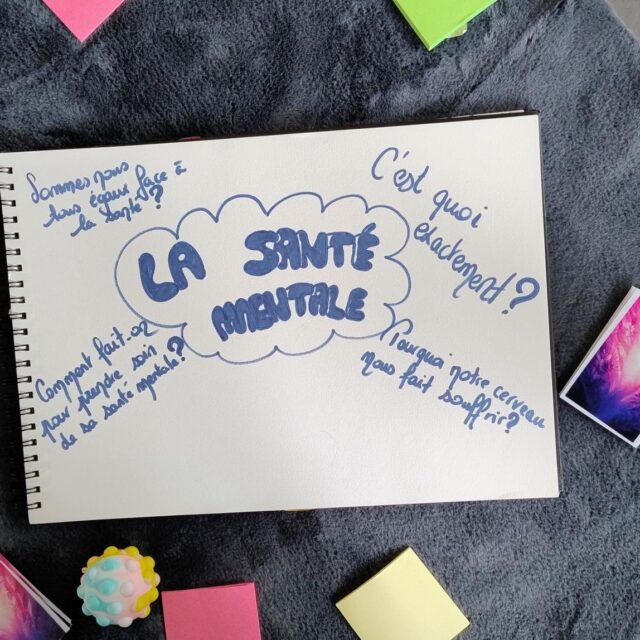 Sommes nous
tous égaux face à
la santé ?
C'est quoi
exactement ?
LA SANTÉ
MENTALE
Comment fait-on
pour prendre soin
de sa santé mentale ?
Pourquoi notre cerveau
nous fait souffrir ?